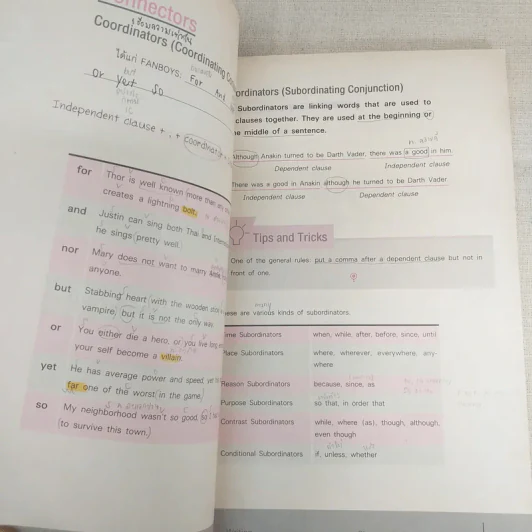 nnectors
เชื่อมความเท่ากัน
Coordinators (Coordinating
ได้แก่ FANBOYS: For And
but
Or yet so
Independent clause + , + coordinator
for Thor is well known more than any
creates a lightning bolt.
and Justin can sing both Thai and
he sings pretty well.
nor Mary does not want to marry
anyone.
but Stabbing heart with the wooden stick
vampire, but it is not the only way.
or You either die a hero, or you live long
your self become a villain.
yet He has average power and speed, yet
far one of the worst in the game.
so My neighborhood wasn't so good, so I
to survive this town.
ordinators (Subordinating Conjunction)
Subordinators are linking words that are used to
clauses together. They are used at the beginning or
he middle of a sentence.
Although Anakin turned to be Darth Vader, there was a good in him.
Dependent clause Independent clause
There was a good in Anakin although he turned to be Darth Vader.
Independent clause Dependent clause
Tips and Tricks
One of the general rules: put a comma after a dependent clause but not in
front of one.
many
ese are various kinds of subordinators.
ime Subordinators when, while, after, before, since, until
lace Subordinators where, wherever, everywhere, any-
where
Reason Subordinators because, since, as
Purpose Subordinators so that, in order that
Contrast Subordinators while, where (as), though, although,
even though
Conditional Subordinators if, unless, whether